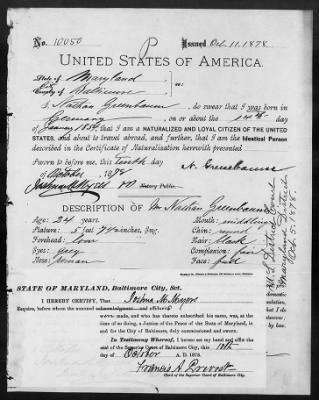 No. 10050
P
Issued Oct. 11. 1878
UNITED STATES OF AMERICA.
State of Maryland
County of Baltimore ss:
I, Nathan Greenbaum, do swear that I was born in
Germany on or about the 14th day
of January 1854; that I am a NATURALIZED AND LOYAL CITIZEN OF THE UNITED
STATES, and about to travel abroad, and further, that I am the Identical Person
described in the Certificate of Naturalization herewith presented
Sworn to before me, this Tenth day
of October 1878
N. Greenbaum
Notary Public.
DESCRIPTION OF Mr Nathan Greenbaum
Age: 24 years.
Mouth: middling
Stature: 5 feet 7 1/2 inches, Eng.
Chin: round
Forehead: low
Hair: black
Eyes: gray
Complexion: fair
Nose: roman
Face: full
U. S. District Court
Maryland District
STATE OF MARYLAND, Baltimore City, Sct.
I HEREBY CERTIFY, That Joshua M. Myers
Esquire, before whom the annexed
made, and who has thereto subscribed his name, was, at the
time of so doing, a Justice of the Peace of the State of Maryland, in
and for the City of Baltimore, duly commissioned and sworn.
In Testimony Whereof, I hereto set my hand and affix the seal
of the Superior Court of Baltimore City, this 10th
day of October A. D. 1878.
Francis A. Prevost
Clerk of the Superior Court of Baltimore City.